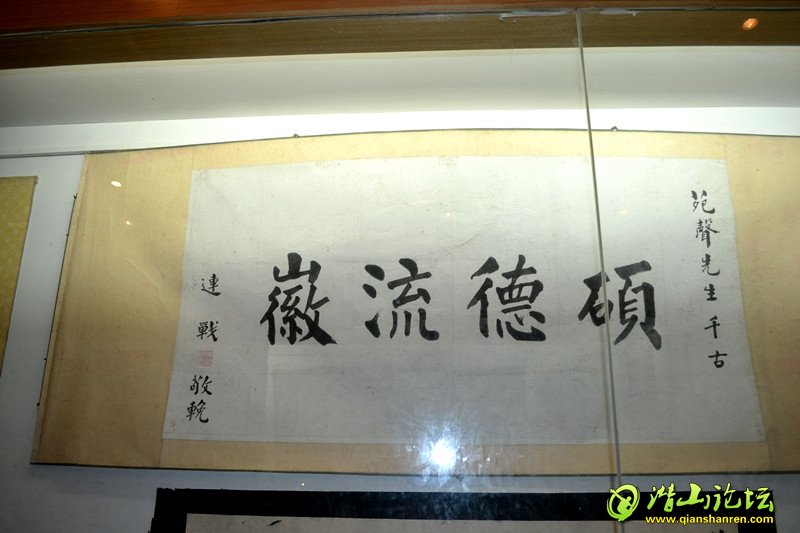 苑聲先生千古
碩德流徽
連戰
敬輓
潜山论坛
www.qianshanren.com